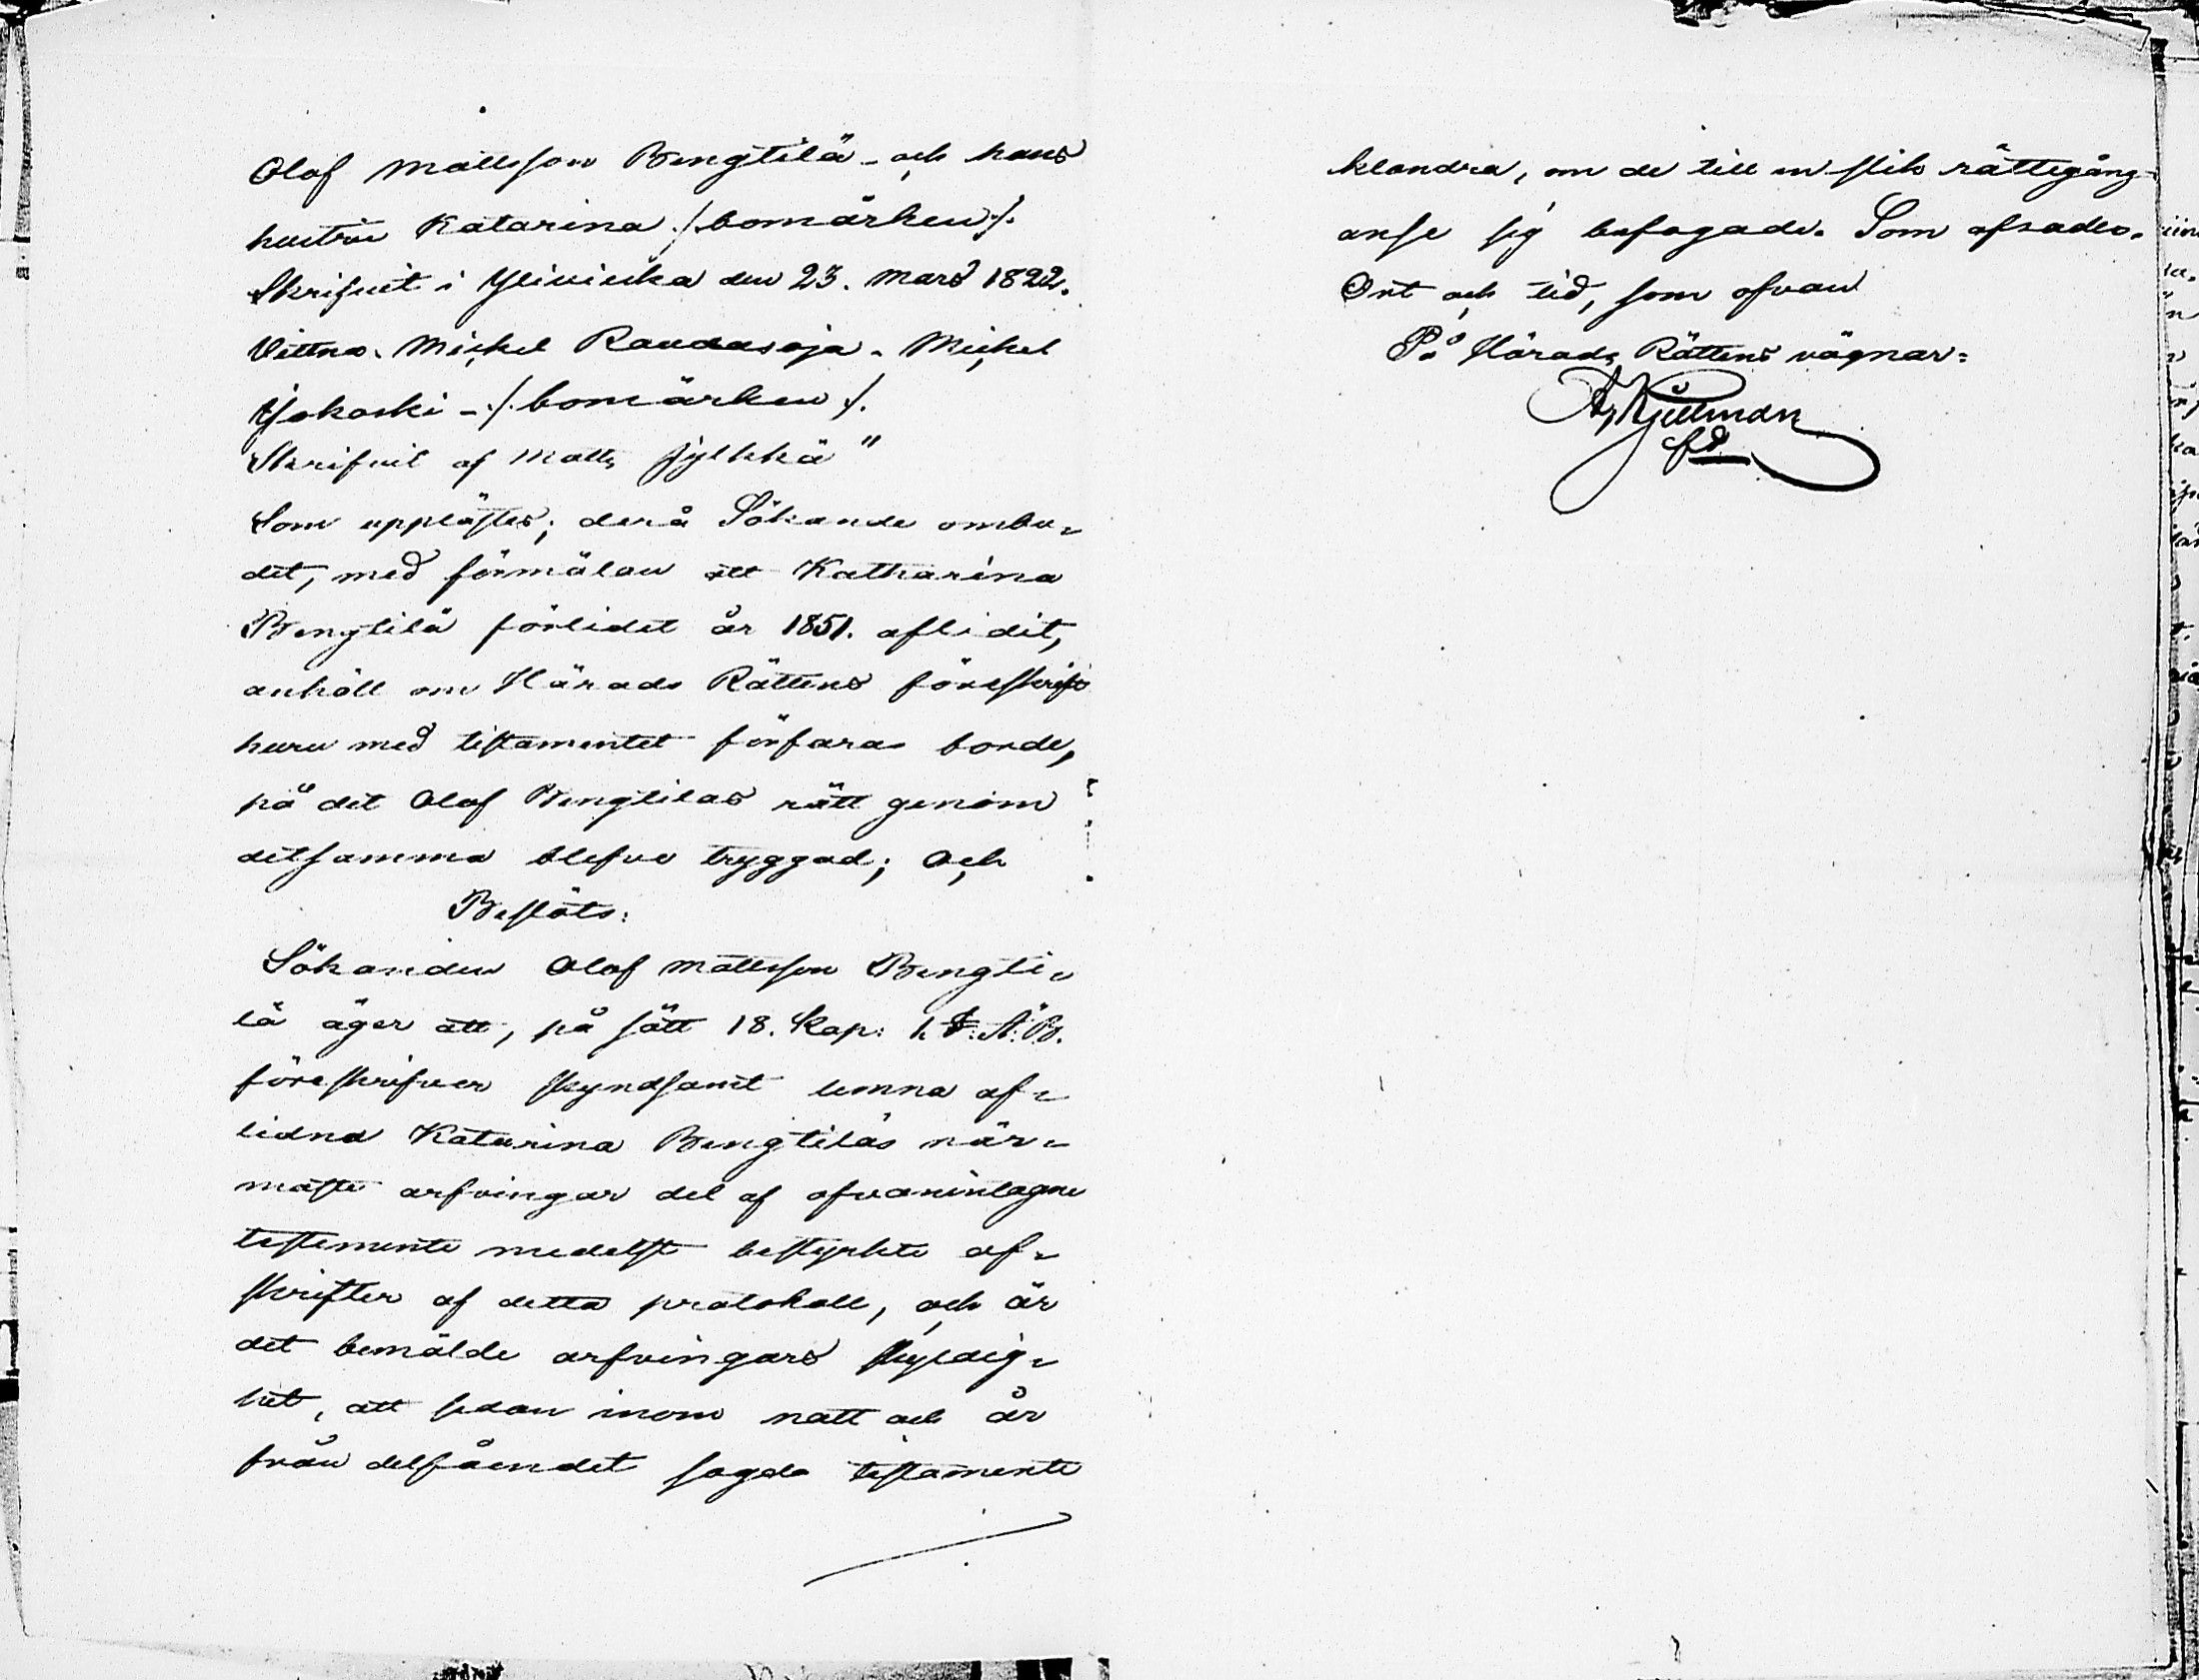 Olof Mattsson Bengtilä - och hans
hustru Katarina ./. bomärken ./.
Skrifvit i Ylivieska den 23. Mars 1822.
Vittna. Michel Raudasoja. Michel
Yjokoski - ./. bomärken ./.
Skrifvit af Matts Jylkkä"
Som upplästes; derå Sökande ombu-
det, med förmälan att Katharina
Bengtilä förlidet år 1851. aflidit,
anhöll om Härads Rättens föreskrift
huru med testamentet förfaras borde,
på det Olof Bengtiläs rätt genom
detsamma blefve tryggad; Och
Beslöts:
Sökanden Olof Mattsson Bengti-
lä äger att, på sätt 18. Kap: 1. §. Ä. B.
föreskrifver skyndsamt lemna af-
lidna Katarina Bengtiläs när-
maste arfvingar del af ofvanintagne
testemente medelst bestyrkte af-
skrifter af detta protokoll, och är
det bemälde arfvingars skyldig-
het, att sedan inom natt och år
från delfåendet sagde testamente
klandra, om de till en slik rättegång
anse sig befogade. Som afsades.
Ort och tid, som ofvan
På Härads Rättens vägnar:
Kjellman